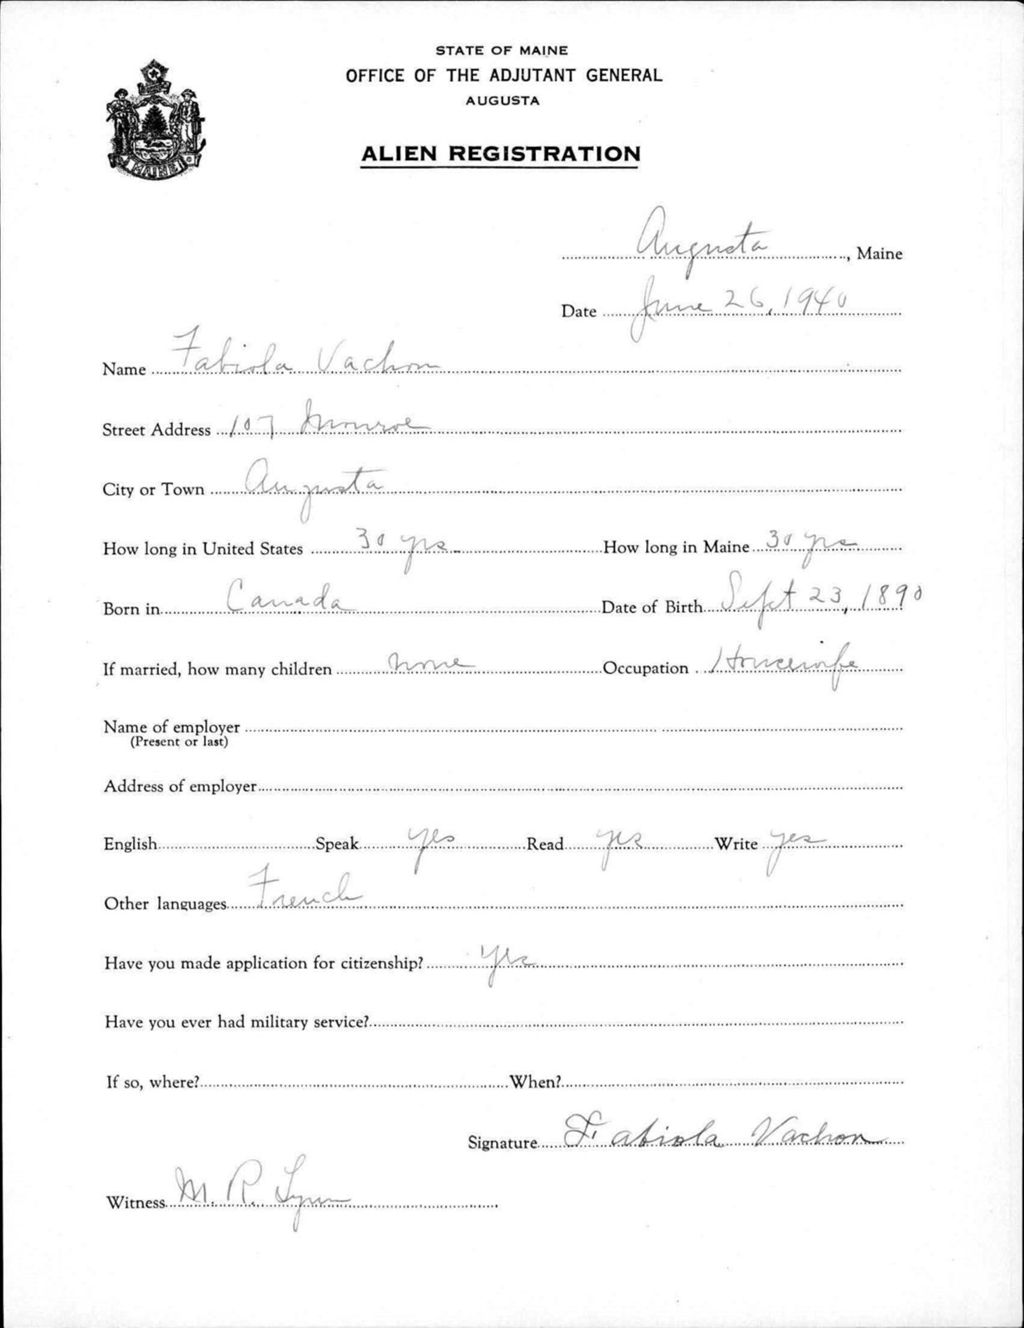 STATE OF MAINE
OFFICE OF THE ADJUTANT GENERAL
AUGUSTA
ALIEN REGISTRATION
MAINE
Augusta, Maine
Date June 26, 1940
Name Fabiola Vachon
Street Address 107 Monroe
City or Town Augusta
How long in United States 30 yrs. How long in Maine 30 yrs
Born in Canada Date of Birth Sept 23, 1890
If married, how many children None Occupation Housewife
Name of employer
(Present or last)
Address of employer
English Speak yes Read yes Write yes
Other languages French
Have you made application for citizenship? Yes
Have you ever had military service?
If so, where? When?
Signature Fabiola Vachon
Witness M. R. Lynn